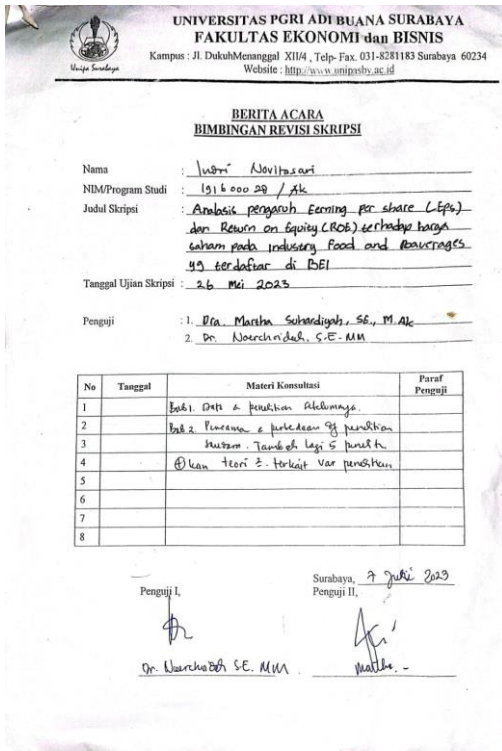 UNIVERSITAS PGRI ADI BUANA SURABAYA
FAKULTAS EKONOMI dan BISNIS
Kampus : Jl. DukuhMenanggal XII/4 , Telp- Fax. 031-8281183 Surabaya 60234
Website : http://www.unipasby.ac.id
Unipa Surabaya
BERITA ACARA
BIMBINGAN REVISI SKRIPSI
Nama : Indri Novitasari
NIM/Program Studi : 1916 000 28 / Ak
Judul Skripsi : Analisis pengaruh Eerning per share (Eps)
dan Return on Equity (ROE) terhadap harga
saham pada industry Food and Baverages
yg terdaftar di BEI
Tanggal Ujian Skripsi : 26 Mei 2023
Penguji : 1. Dra. Martha Suhardiyah, SE., M.Ak
2. Dr. Noerchoidah, S.E-MM
No Tanggal Materi Konsultasi Paraf Penguji
1 Bab 1. Data & penelitian sebelumnya.
2 Bab 2. & perbedaan dg penelitian
3 Tambah lagi 5
4 kan teori terkait var penelitian
5
6
7
8
Surabaya, 7 Juli 2023
Penguji I, Penguji II,
Dr. Noerchoidah S.E. MM Martha. -